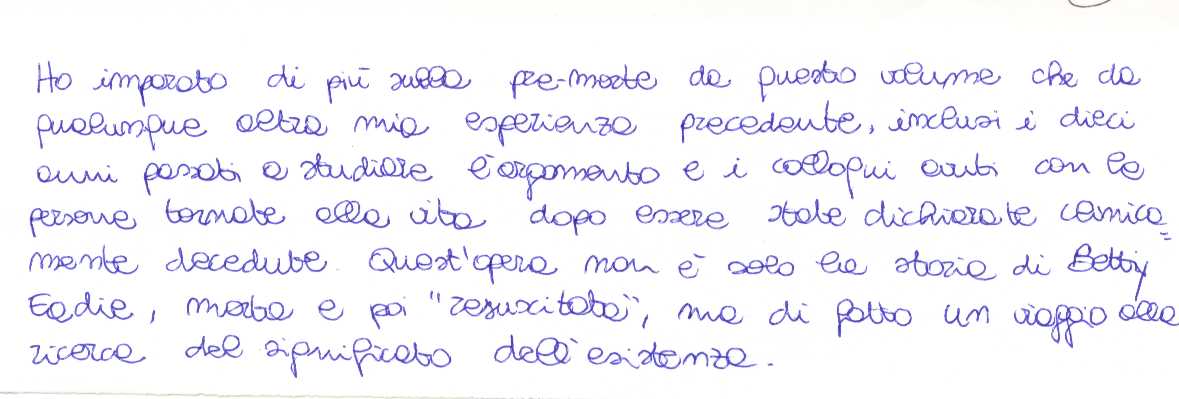 Ho imparato di più sulla pre-morte da questo volume che da
qualunque altra mia esperienza precedente, inclusi i dieci
anni passati a studiare l'argomento e i colloqui avuti con le
persone tornate alla vita dopo essere state dichiarate clinica=
mente decedute. Quest'opera non è solo la storia di Betty
Eadie, morta e poi "resuscitata", ma di fatto un viaggio alla
ricerca del significato dell'esistenza.